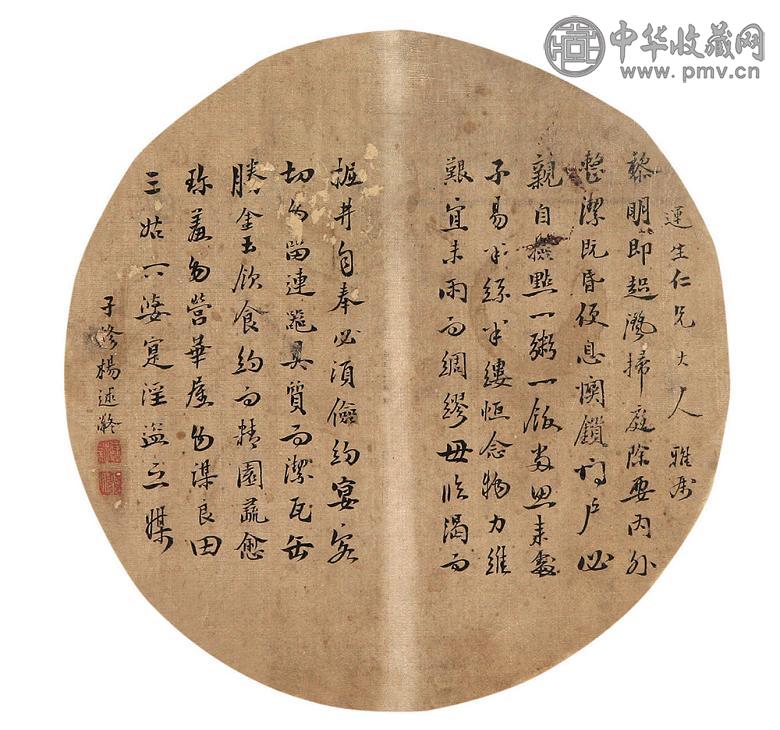 中华收藏网
www.pmv.cn
生仁兄大人雅属
黎明即起灑掃庭除要內外
整潔既昏便息關鎖門户必
親自檢點一粥一飯當思來處
不易半絲半縷恒念物力維
艱宜未雨而綢繆毋臨渴而
掘井自奉必須儉約宴客
切勿留連器具質而潔瓦缶
勝金玉飲食約而精園蔬愈
珍羞勿營華屋勿謀良田
三姑六婆寔淫盜之媒
子修楊述